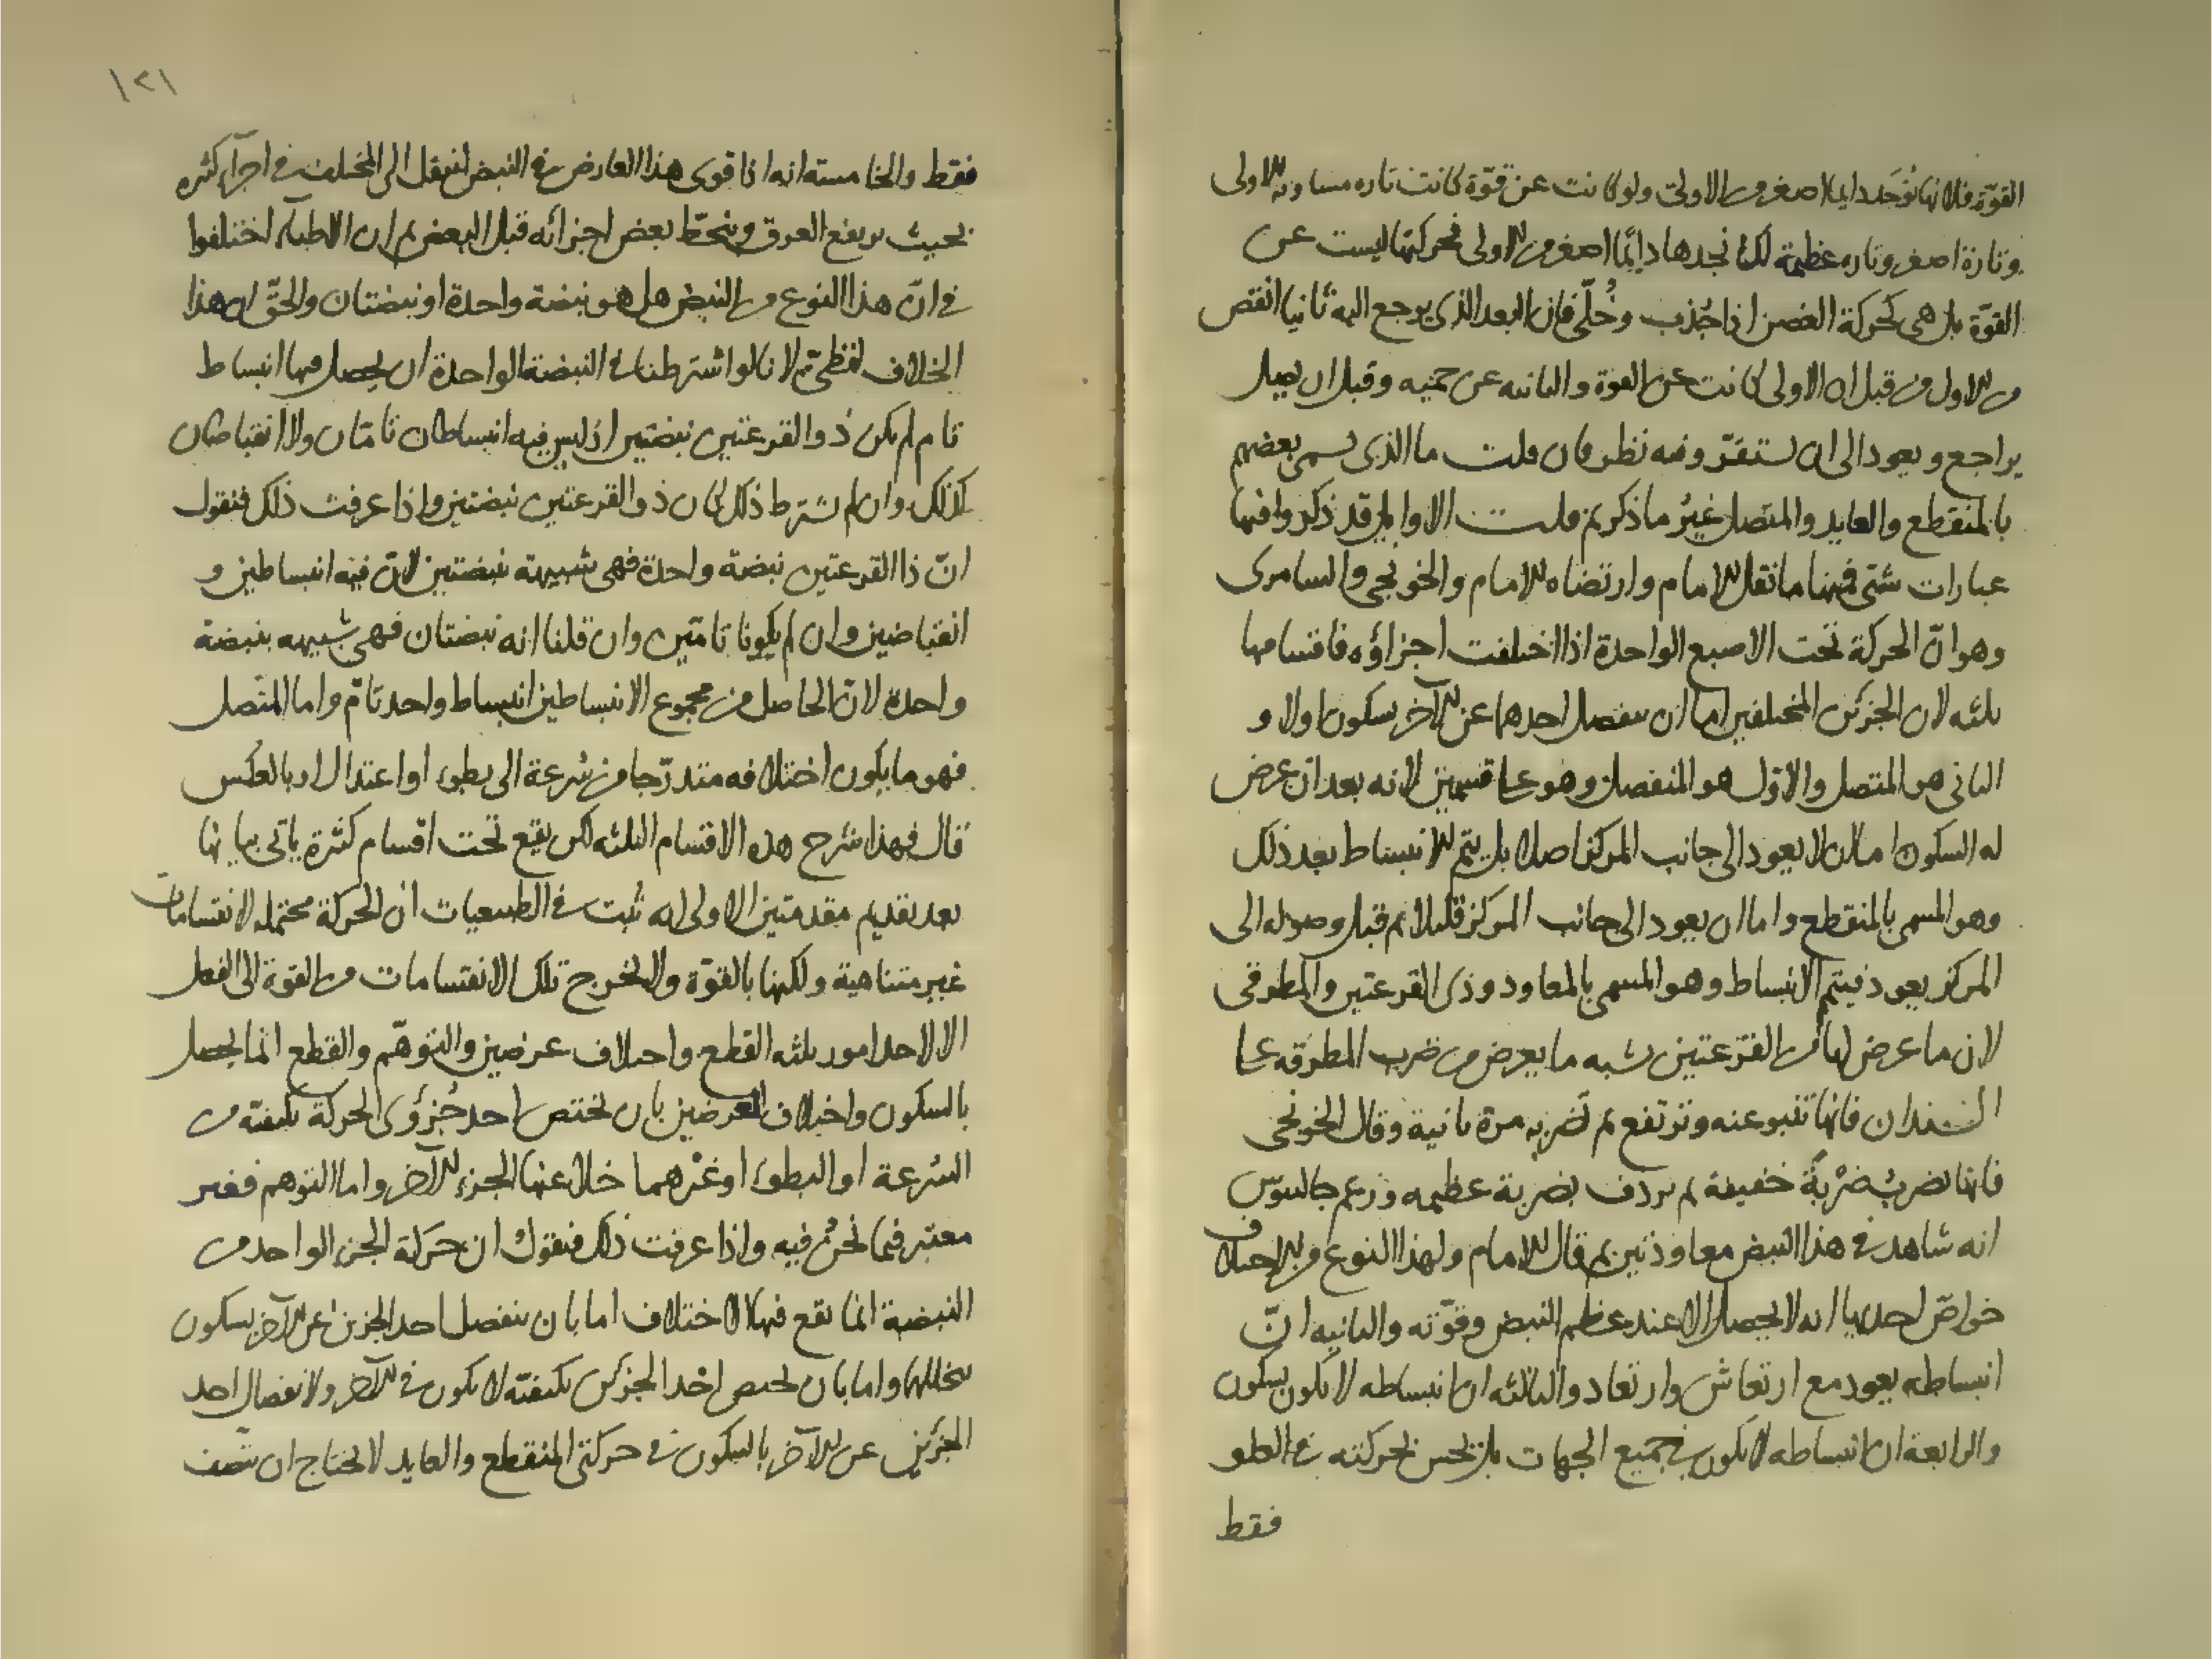 القوّة فلانها توجد دايما اصغر من الاولى ولو كانت عن قوّة كانت تاره مساوية للاولى
وتارة اصغر وتاره عظيمة لكنا نجدها دائما اصغر من الاولى فحركتها ليست عن
القوّة بل هى كحركة الغصن اذا جُذب وخُلّى فان البعد الذى يرجع اليه ثانيا انقص
من الاول من قبل ان الاولى كانت عن القوة والثانيه عن حميه وقبل ان يصل
يراجع ويعود الى ان تستقرّ وفيه نظر فان قلت ما الذى يسمى بعضهم
بالمنقطع والعايد والمتصل غيرُ ما ذكر ثم قلت الاوايل قد ذكروا فيها
عبارات شتى فمنها ما نقل الامام وارتضاه الامام والخونجى والسامرى
وهو انّ الحركة تحت الاصبع الواحدة اذا اختلفت اجزاؤه فاقسامها
ثلثه لان الجزئين المختلفين اما ان ينفصل احدهما عن الآخر بسكون اولا و
الثانى هو المتصل والاوّل هو المنفصل وهو على قسمين لانه بعد ان عرض
له السكون اما ان لا يعود الى جانب المركز اصلا بل يتم الانبساط بعد ذلك
وهو المسمى بالمنقطع واما ان يعود الى جانب المركز قليلا ثم قبل وصوله الى
المركز يعود فيتم الانبساط وهو المسمى بالمعاود وذى القرعتين والمطرقى
لان ما عرض لها من القرعتين يشبه ما يعرض من ضرب المطرقه على
السندان فانها تنبو عنه وترتفع ثم تضربه مرة ثانية وقال الخونجى
فانها تضربُ ضرْبةً خفيفة ثم تردف بضربة عظيمه وزعم جالينوس
انه شاهد فى هذا النبض معاودتين ثم قال الامام ولهذا النوع من الاختلاف
خواصّ احديها انه لا يحصل الا عند عظم النبض وقوّته والثانيه انّ
انبساطه يعود مع ارتعاش وارتعاد والثالثه ان انبساطه لا يكون بسكون
والرابعة ان انبساطه لا يكون فى جميع الجهات بل يحس بحركته فى العلو
فقط
١٢١
فقط والخامسة انه اذا قوى هذا العارض فى النبض انتقل الى المختلف فى اجزآء كثيره
بحيث يرتفع العرق وينحطّ بعض اجزائه قبل البعض ثم ان الاطبآء اختلفوا
فى انّ هذا النوع من النبض هل هو نبضة واحدة او نبضتان والحقّ ان هذا
الخلاف لفظىّ لانا لو اشترطنا فى النبضة الواحدة ان يحصل فيها انبساط
تام لم يكن ذو القرعتين نبضتين اذ ليس فيه انبساطان تامّان ولا انقباضان
كذلك وان لم نشترط ذلك كان ذو القرعتين نبضتين واذا عرفت ذلك فنقول
انّ ذا القرعتين نبضة واحدة فهى شبيهة بنبضتين لانّ فيه انبساطين و
انقباضين وان لم يكونا تامّين وان قلنا انه نبضتان فهى شبيهه بنبضة
واحدة لانّ الحاصل من مجموع الانبساطين انبساط واحد تامّ واما المتّصل
فهو ما يكون اختلافه متدرّجا من سُرعة الى بطوء او اعتدال او بالعكس
قال فهذا شرح هذه الاقسام الثلثه لكن يقع تحت اقسام كثرة ياتى بيانها
بعد تقديم مقدمتين الاولى انه ثبت فى الطبيعيات ان الحركة محتمله لانقسامات
غير متناهية ولكنها بالقوّة ولا تخرج تلك الانقسامات من القوة الى الفعل
الا لاحد امور ثلثه القطع واختلاف عرضين والتوهّم والقطع انما يحصل
بالسكون واختلاف العرضين بان يختص احد جُزؤى الحركة بكيفيّة من
السُرعة او البطوء او غيْرهما خلا عنها الجزء الآخر واما التوهم فغير
معتبر فيما نحنُ فيه واذا عرفت ذلك فنقول ان حركة الجزء الواحد من
النبضة انما تقع فيها الاختلاف اما بان ينفصل احد الجزئين عن الآخر بسكون
يتخللهما واما بان يختص احد الجزئين بكيفيّة لا يكون فى الآخر ولانفصال احد
الجزئين عن الآخر بالسكون فى حركتى المنقطع والعايد لا يحتاج ان تتّصف